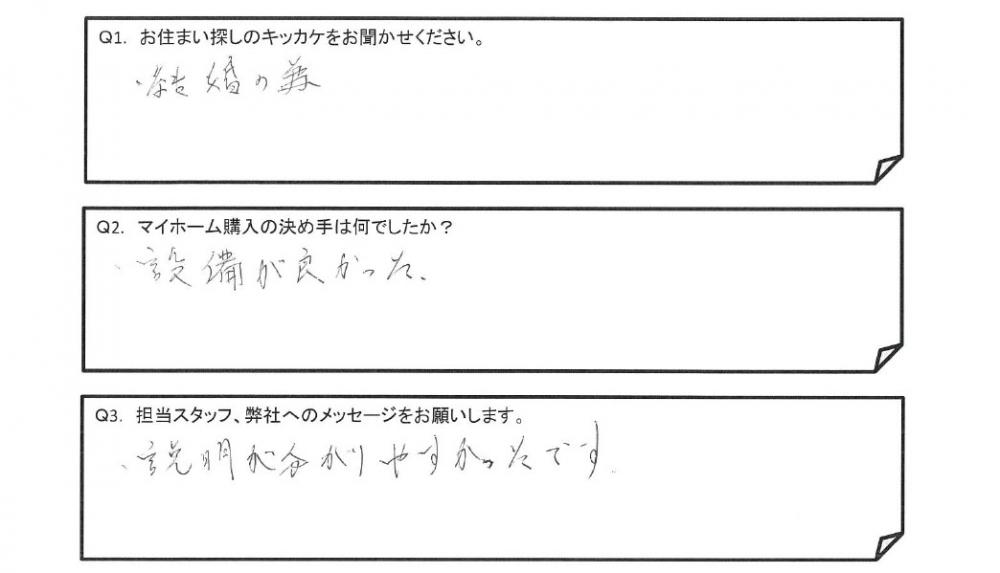 Q1. お住まい探しのキッカケをお聞かせください。
・結婚の為
Q2. マイホーム購入の決め手は何でしたか？
・設備が良かった。
Q3. 担当スタッフ、弊社へのメッセージをお願いします。
・説明が分かりやすかったです。